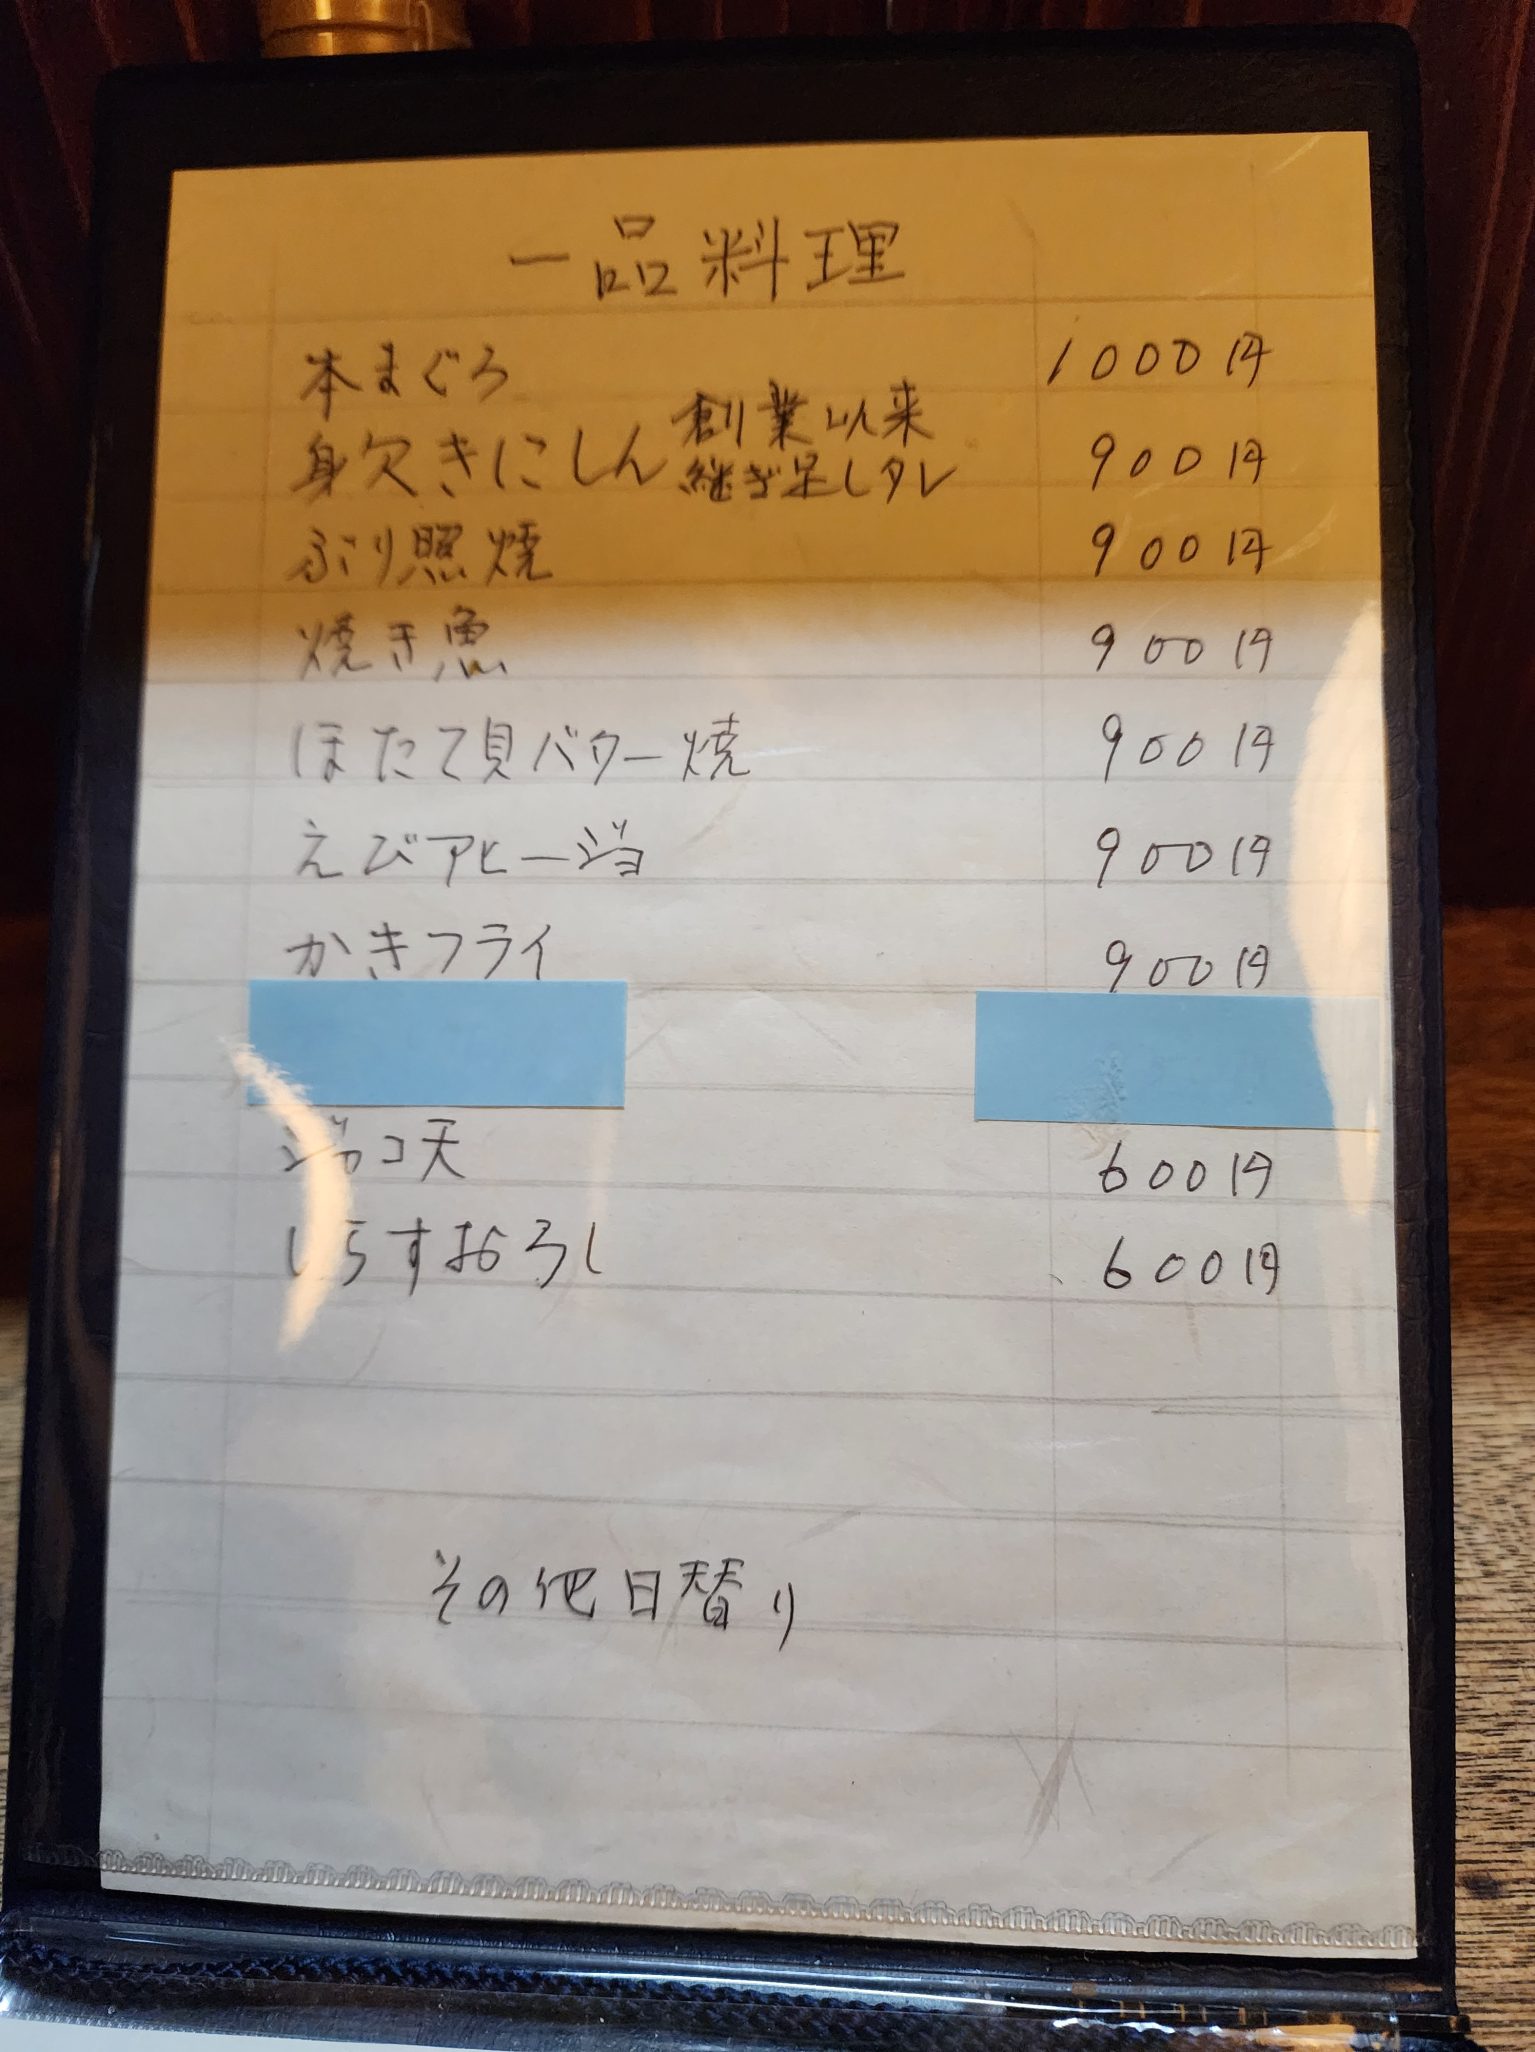 一品料理
本まぐろ 1000円
身欠きにしん 創業以来 継ぎ足しタレ 900円
ぶり照焼 900円
焼き魚 900円
ほたて貝バター焼 900円
えびアヒージョ 900円
かきフライ 900円
じゃコ天 600円
しらすおろし 600円
その他日替り